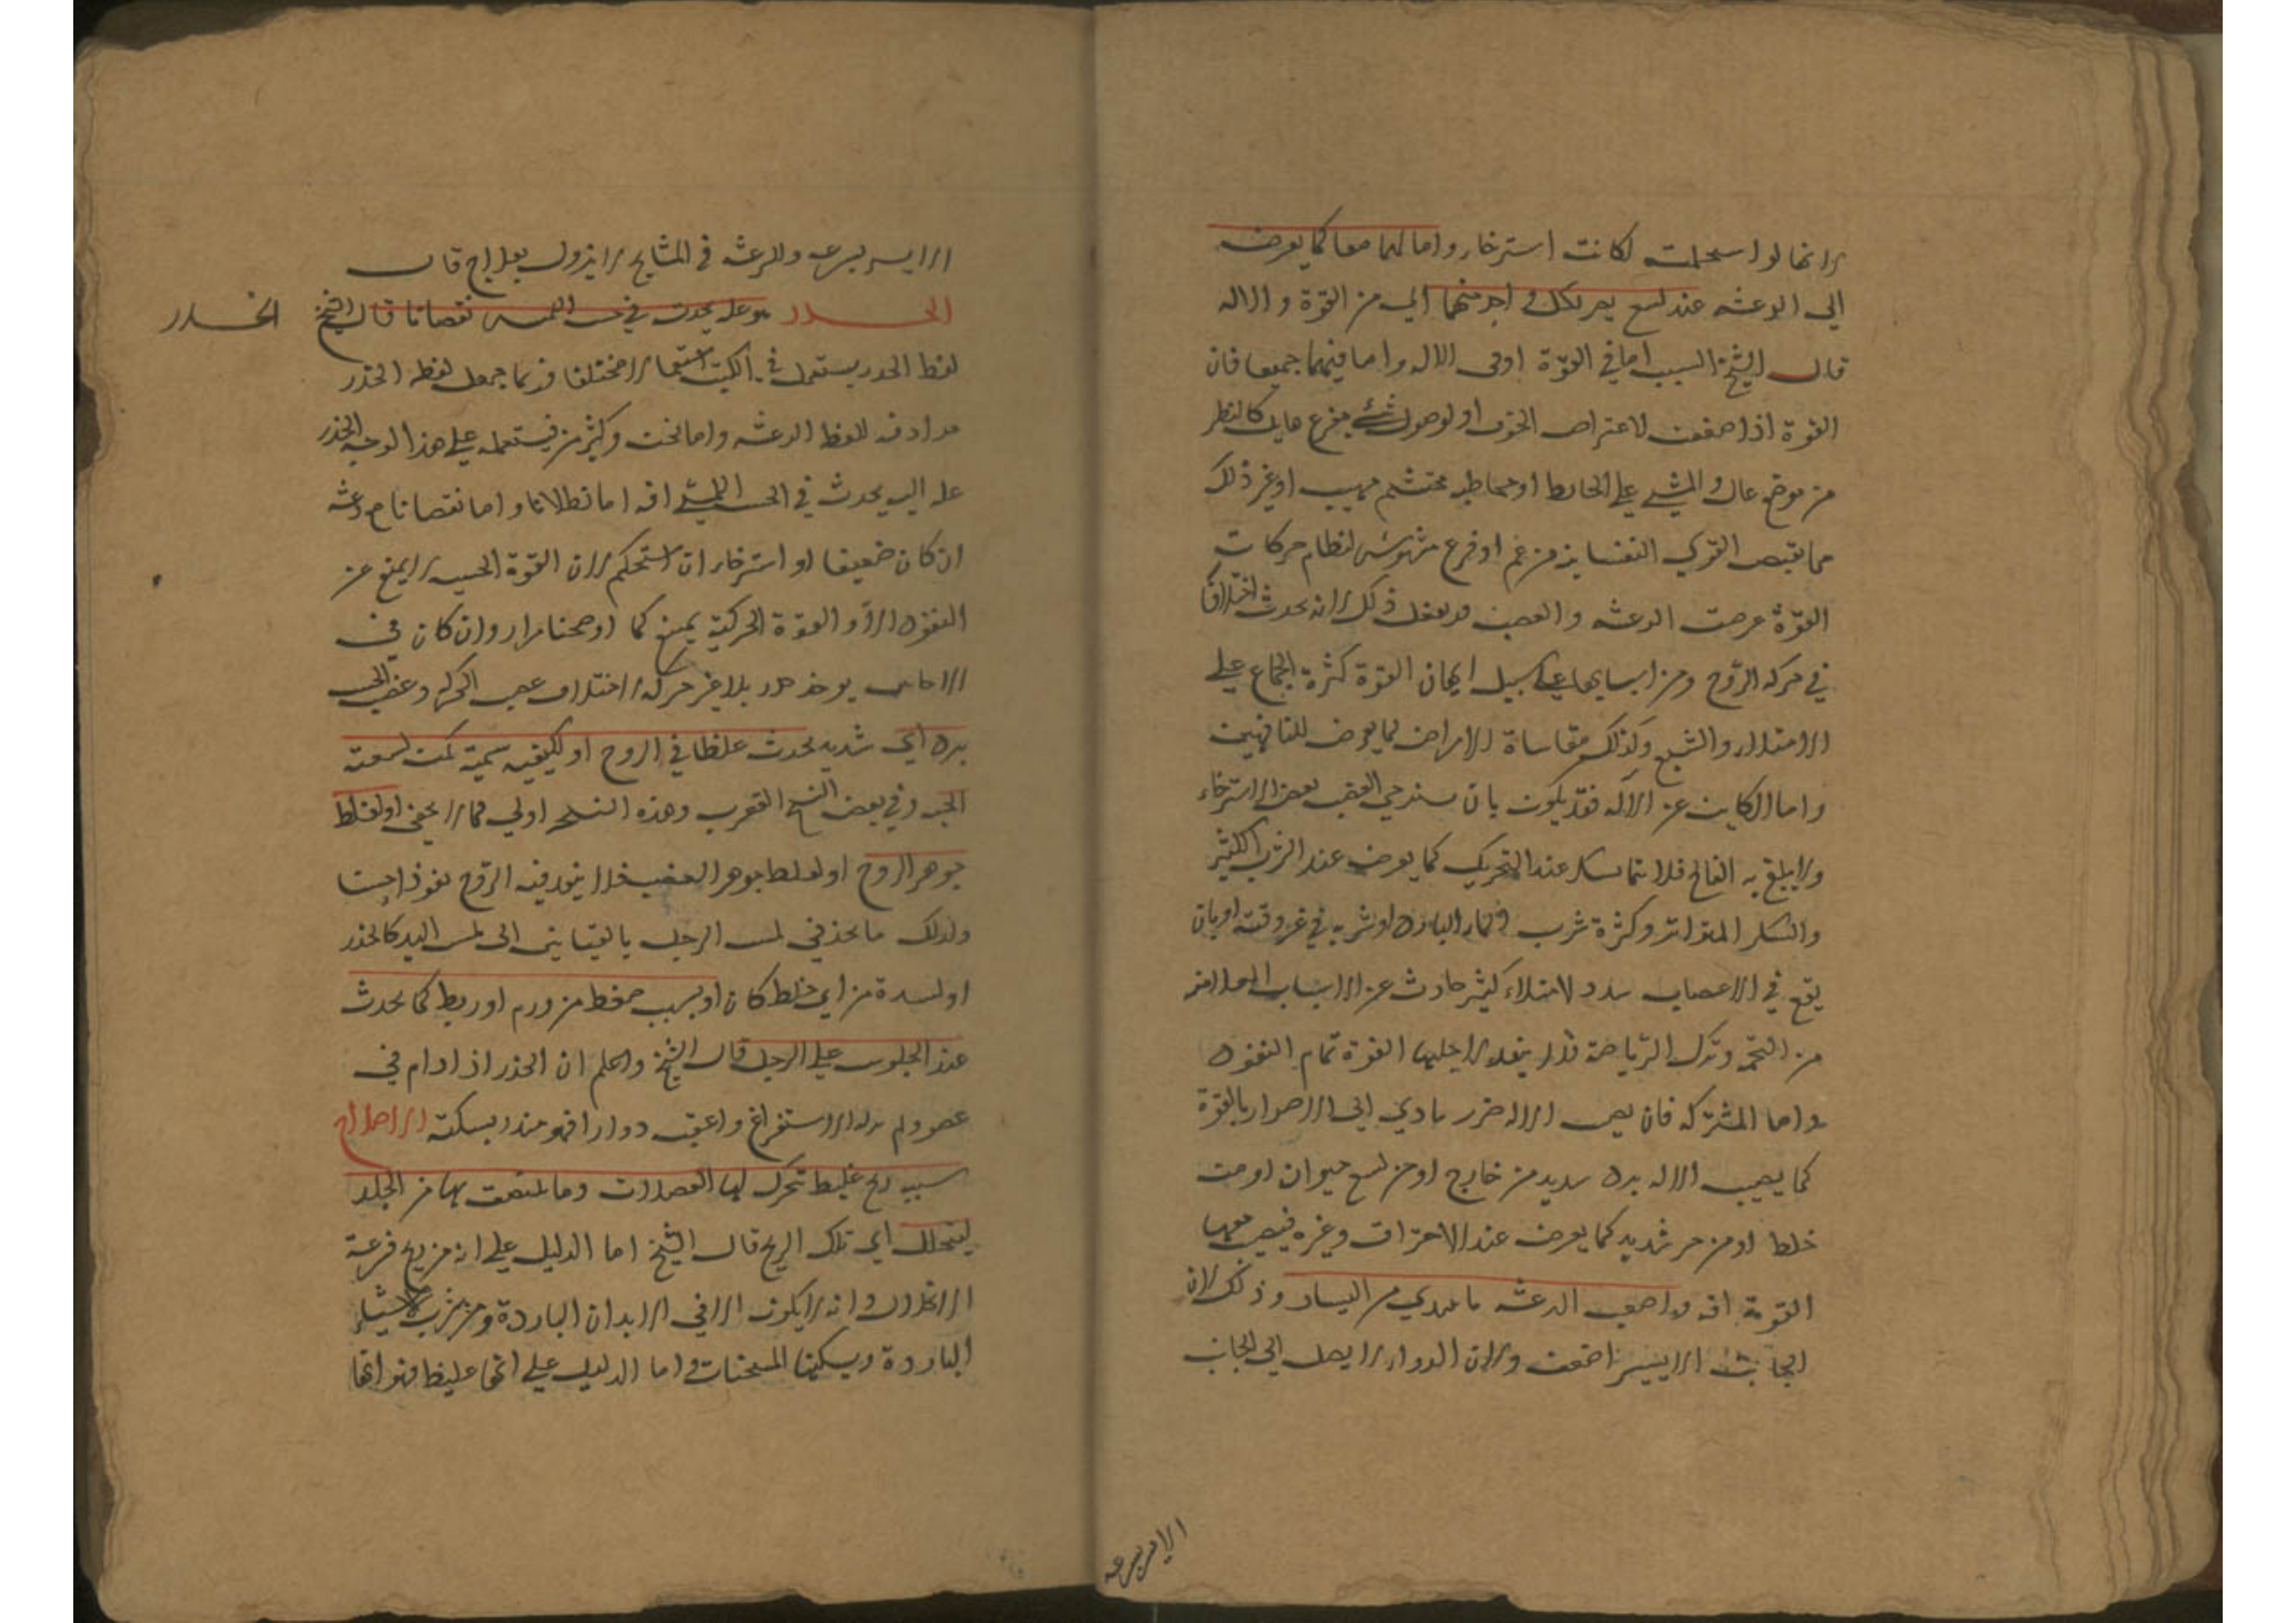 لانها لو استحكمت لكانت استرخاء واما لهما معا كما يعرض
الى الرعشه عند لسع اى من القوة والاله
قال الشيخ السبب اما فى القوة او فى الاله واما فيهما جميعا فان
القوة اذا ضعفت لاعتراض الخوف او لوصول شئ مفزع هايل كالنظر
من موضع عال والمشي على الحايط او مخاطبه محتشم مهيب او غير ذلك
مما يقبض القوي النفسانيه من غم او فرح مشوش لنظام حركات
القوة عرضت الرعشه والغضب قد يفعل ذلك لانه يحدث اختلافا
في حركه الروح ومن اسبابها على سبيل ايهان القوة كثرة الجماع على
الامتلاء والشبع وكذلك مقاساة الامراض كما يعرض للناقهين
واما الكاين عن الاله فقد يكون بان يسترخي العصب بعض الاسترخاء
ولا يبلغ به الفالج فلا يتماسك عند التحريك كما يعرض عند الشرب الكثير
والسكر المتواتر وكثرة شرب الماء البارد او شربه في غير وقته او بان
يقع في الاعصاب سدد لامتلاء كثير حادث عن الاسباب
من التخم وترك الرياضة فلا ينفذ لاجلها القوة تمام النفوذ
واما المشتركه فان يصيب الاله ضرر يادي الى الاضرار بالقوة
كما يصيب الاله برد شديد من خارج او من لسع حيوان او من
خلط او من حر شديد كما يعرض عند الاحتراق وغيره فيصيب معها
القوة افه واصعب الرعشه ما يبتدي من اليسار وذلك لان
الجانب الايسر اضعف ولان الدواء لا يصل الى الجانب
الايسر بسرعه
الايسر بسرعه والرعشه في المشايخ لا يزول بعلاج قال
الخدر هو عله يحدث في حس اللمس نقصانا قال الشيخ
الخدر
لفظ الخدر يستعمل في الكتب استعمالا مختلفا فربما جعل لفظه الخدر
مرادفه للفظ الرعشه واما نحن وكثير من فيستعمله على هذا الوجه الخدر
عله اليه يحدث في الحس اللمسي افه اما بطلانا واما نقصانا مع رعشه
ان كان ضعيفا او استرخاء ان استحكم لان القوة الحسيه لا يمنع عن
النفوذ الا والقوة الحركية يمنع كما اوضحنا مرارا وان كان في
الاحايين يوجد خدر بلا عسر حركه لاختلاف عصب الحركه وعصب الحس
برد اى شديد يحدث غلظا في الروح او لكيفيه سمية كمن لسعته
الحيه وفي بعض النسخ العقرب وهذه النسخه اولي كما لا يخفى او لغلظ
جوهر الروح او لغلظ جوهر العصب فلا ينفذ فيه الروح نفوذا حسنا
ولذلك ما يجد في لمس الرجل بالقياس الى لمس اليد كالخدر
او لسدة من اي خلط كان او بسبب ضغط من ورم او ربط كما يحدث
عند الجلوس على الرجل قال الشيخ واعلم ان الخدر اذا دام في
عضو ولم يزله الاستفراغ واعقب دوارا فهو منذر بسكته الاختلاج
سببه ريح غليظ تتحرك لها العضلات وما يلتصق بها من الجلد
ليتحلل اى تلك الريح قال الشيخ اما الدليل على انه من ريح فسرعة
الانحلال وانه لا يكون الا في الابدان الباردة ومن شرب الاشياء
الباردة ويسكنها المسخنات واما الدليل على انها غليظ فهو انها